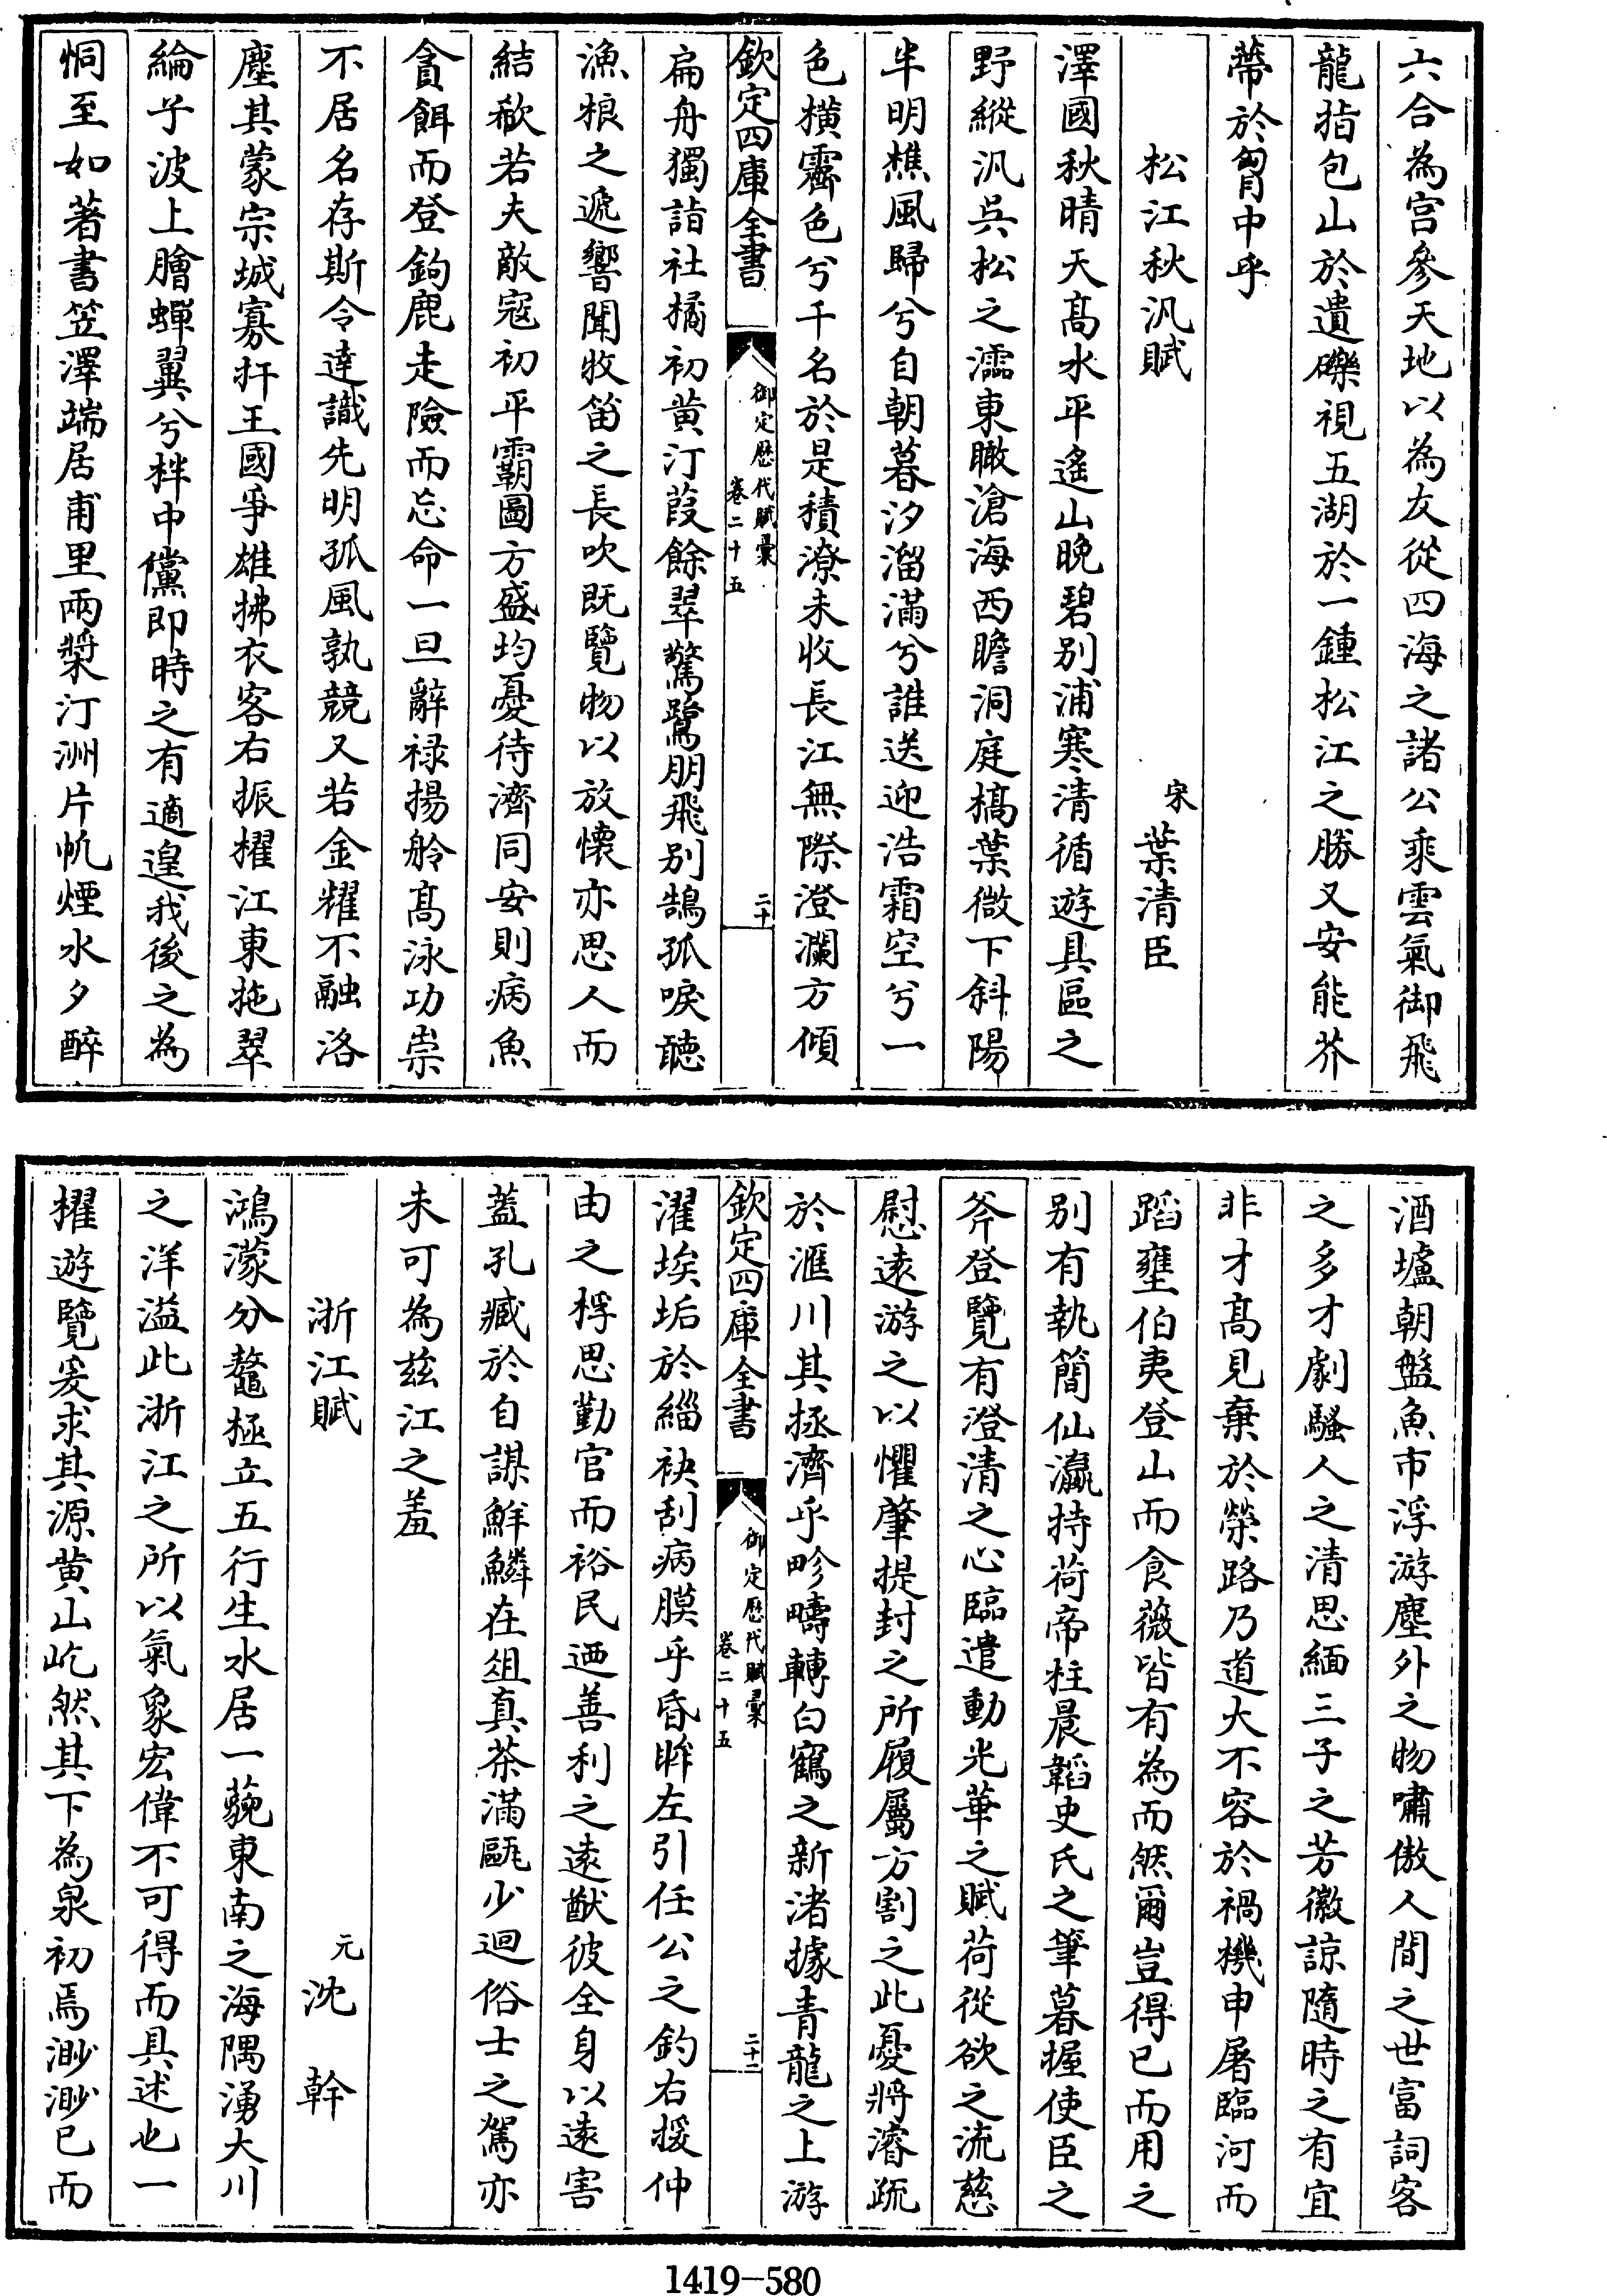 六合為宫參天地以為友從四海之諸公乘雲氣御飛
龍指包山於遺礫視五湖於一鍾松江之勝又安能芥
蔕於胷中乎
松江秋汎賦
宋葉清臣
澤國秋晴天髙水平遙山晚碧别浦寒清循遊具區之
野縱汎吳松之㵮東瞰滄海西瞻洞庭槁葉微下斜陽
半明樵風歸兮自朝暮汐溜滿兮誰送迎浩霜空兮一
色橫霽色兮千名於是積潦未收長江無際澄瀾方傾
欽定四庫全書
御定歴代賦彚
卷二十五
二十
扁舟獨詣社橘初黄汀葭餘翠驚鷺朋飛别鵠孤唳聽
漁榔之遞響聞牧笛之長吹既覽物以放懷亦思人而
結欷若夫敵寇初平霸圖方盛均憂待濟同安則病魚
貪餌而登鉤鹿走險而忘命一旦辭禄揚舲髙泳功崇
不居名存斯令達識先明孤風孰競又若金耀不融洛
塵其蒙宗城寡扞王國爭雄拂衣客右振櫂江東拖翠
綸子波上膾蟬翼兮柈中儻即時之有適遑我後之為
恫至如著書笠澤端居甫里兩槳汀洲片帆煙水夕醉
酒壚朝盤魚市浮游塵外之物嘯傲人間之世富詞客
之多才劇騷人之清思緬三子之芳徽諒隨時之有宜
非才髙見棄於榮路乃道大不容於禍機申屠臨河而
蹈壅伯夷登山而食薇皆有為而然爾豈得已而用之
别有執簡仙瀛持荷帝柱晨韜史氏之筆暮握使臣之
斧登覽有澄清之心臨遣動光華之賦荷從欲之流慈
慰遠游之以懼肇提封之所履屬方割之此憂將濬疏
於滙川其拯濟乎畛疇轉白鶴之新渚據青龍之上游
欽定四庫全書
御定歴代賦彚
卷二十五
二十一
濯埃垢於緇袂刮病膜乎昏眸左引任公之釣右援仲
由之桴思勤官而裕民廼善利之逺猷彼全身以遠害
蓋孔臧於自謀鮮鱗在俎真茶滿甌少迴俗士之駕亦
未可為兹江之羞
浙江賦
元沈幹
鴻濛分鼇極立五行生水居一藐東南之海隅湧大川
之洋溢此浙江之所以氣象宏偉不可得而具述也一
櫂遊覽爰求其源黄山屹然其下為泉初焉渺渺已而
1419-580